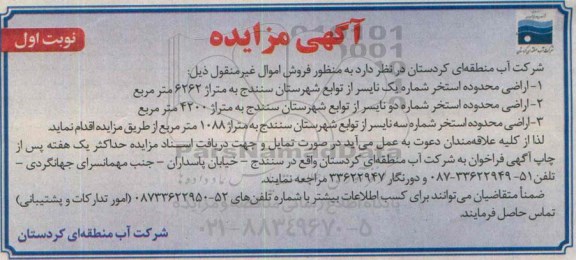 آگهی مزایده
نوبت اول
شرکت آب منطقه‌ای کردستان در نظر دارد به منظور فروش اموال غیرمنقول ذیل:
۱-اراضی محدوده استخر شماره یک نایسر از توابع شهرستان سنندج به متراژ ۶۲۶۲ متر مربع
۲-اراضی محدوده استخر شماره دو نایسر از توابع شهرستان سنندج به متراژ ۴۲۰۰ متر مربع
۳-اراضی محدوده استخر شماره سه نایسر از توابع شهرستان سنندج به متراژ ۱۰۸۸ متر مربع از طریق مزایده اقدام نماید.
لذا از کلیه علاقه‌مندان دعوت به عمل می‌آید در صورت تمایل و جهت دریافت اسناد مزایده حداکثر یک هفته پس از
چاپ آگهی فراخوان به شرکت آب منطقه‌ای کردستان واقع در سنندج - خیابان پاسداران - جنب مهمانسرای جهانگردی -
تلفن ۵۱-۳۳۶۲۲۹۴۹-۰۸۷ و دورنگار ۳۳۶۲۲۹۴۷ مراجعه نمایند.
ضمناً متقاضیان می‌توانند برای کسب اطلاعات بیشتر با شماره تلفن‌های ۵۲-۰۸۷۳۳۶۲۲۹۵۰ (امور تدارکات و پشتیبانی)
تماس حاصل فرمایند.
۰۲۱-۸۸۳۴۹۶۷۰-۵
شرکت آب منطقه‌ای کردستان